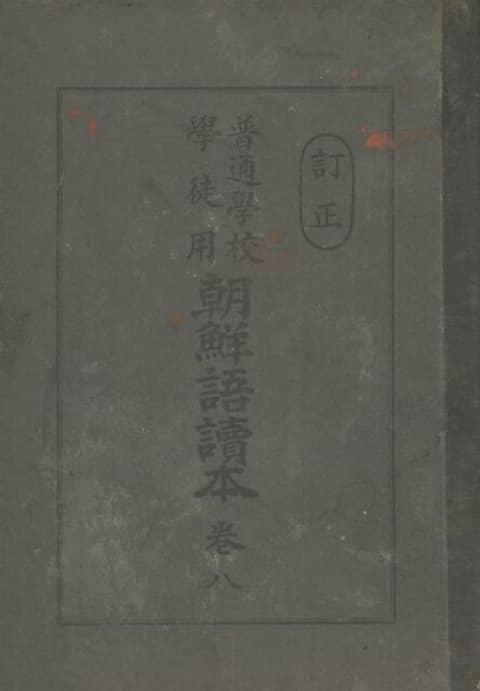 訂正
普通學校
學徒用
朝鮮語讀本 卷八